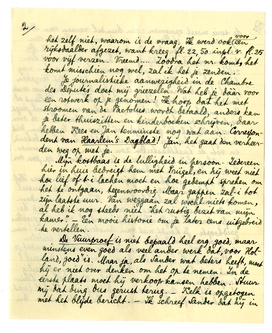 2/
het zelf niet, waarom is de vraag. Ik werd ook voor een
rijksdaalder afgezet, want kreeg fl. 22,50 inpl. v. fl. 25
voor vijf verzen. Vreemd... Zoodra het nr. komt, het
komt misschien nog wel, zal ik het je zenden.
Je journalistieke aanwezigheid in de Chambre
des Députés doet mij griezelen. Wat heb je daar voor
een rotwerk op je genomen! Ik hoop dat het met
stroomen van de Pactolus wordt betaald, anders kan
je beter thuiszitten en kinderboeken schrijven, daar
helken Kees en Jan tenminste nog wat aan. Correspon
dent van Haarlem's Dagblad! Jan, het gaat den verkeer
den weg op met je.
Mijn kostbaas is de lulligheid in persoon. Iedereen
hier in huis bedriegt hem met Truigel, en hij weet niet
hoe lief
te ontgaan, tegenwoordig. Maar gappen zal ik tot
zijn laatste uur. Van weggaan zal wel niets komen,
al heb ik nog steeds niet "het rustig bezit van mijn
kamer". – Een mooie historie om je later eens uitgebreid
te vertellen.
De Vuurproef is niet bepaald heel erg goed, maar
minstens even goed als veel ander werk dat, voor Hol-
land, goed is. Maar ja, als Sander wat beters heeft, moet
hij er niet over denken om het op te nemen. In de
eerste plaats moet hij verkoop kansen hebben. Stuur
mij dat ding dus gerust terug. – Eelk is opgetogen
met het blijde bericht. – Ik schreef Sander dat hij in